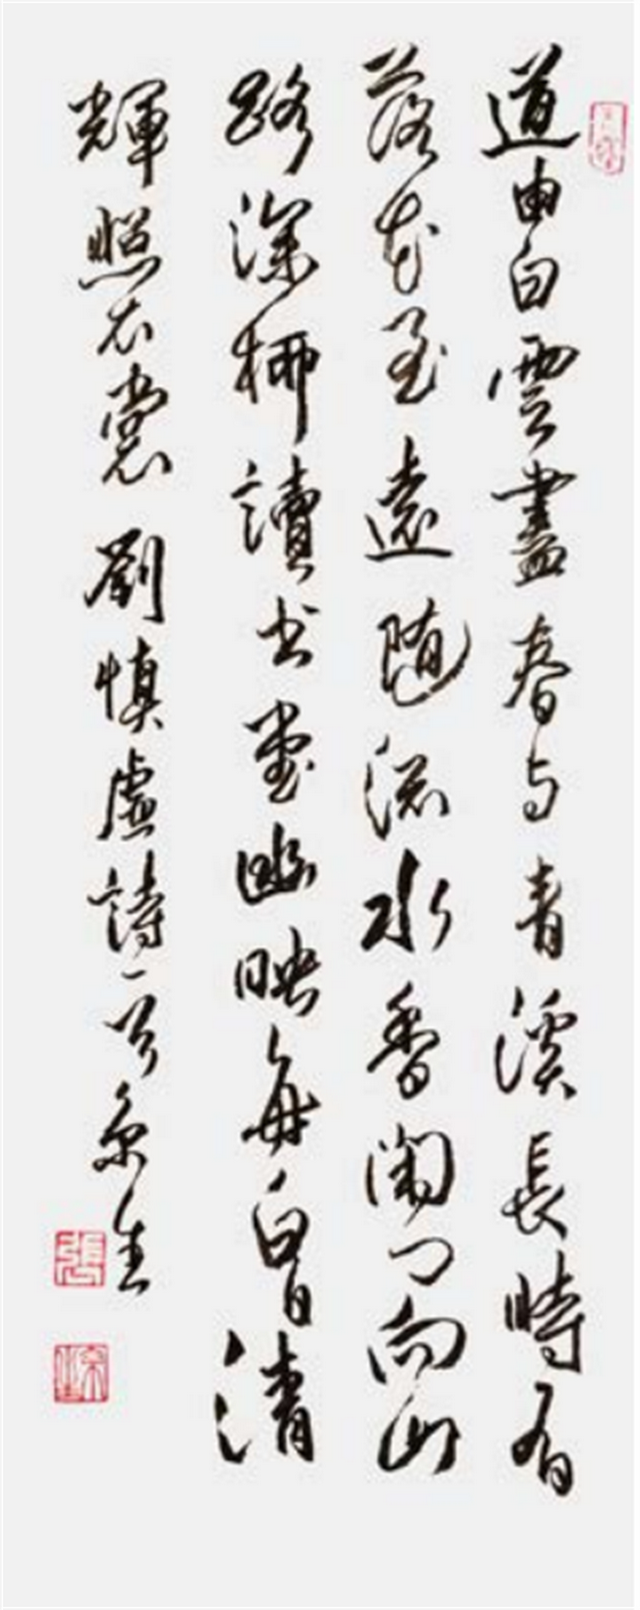 道由白雲盡春与青溪長時有
落花至遠隨流水香閑门向山
路深柳讀书堂幽映每白日清
輝照衣裳劉慎虛詩一首京生
張
京生